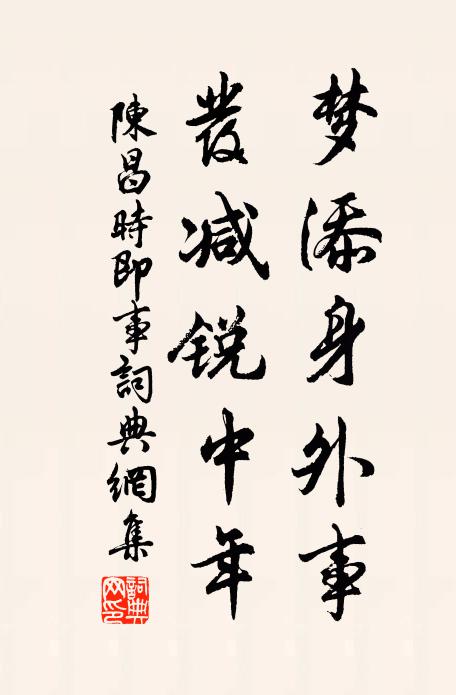 梦添身外事
发减锐中年
陳昌時即事詞典網集
詞典网印